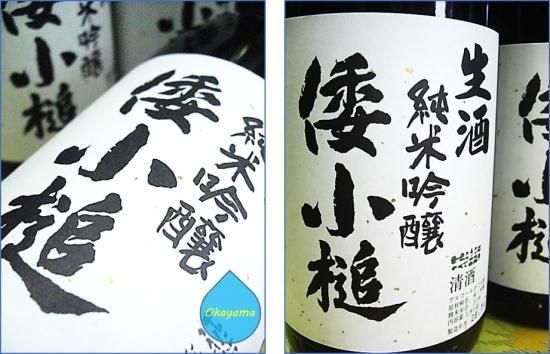 純米吟醸
倭小槌
純米吟醸
倭小槌
Okayama
生酒
純米吟醸
倭小槌
清酒
倭小槌